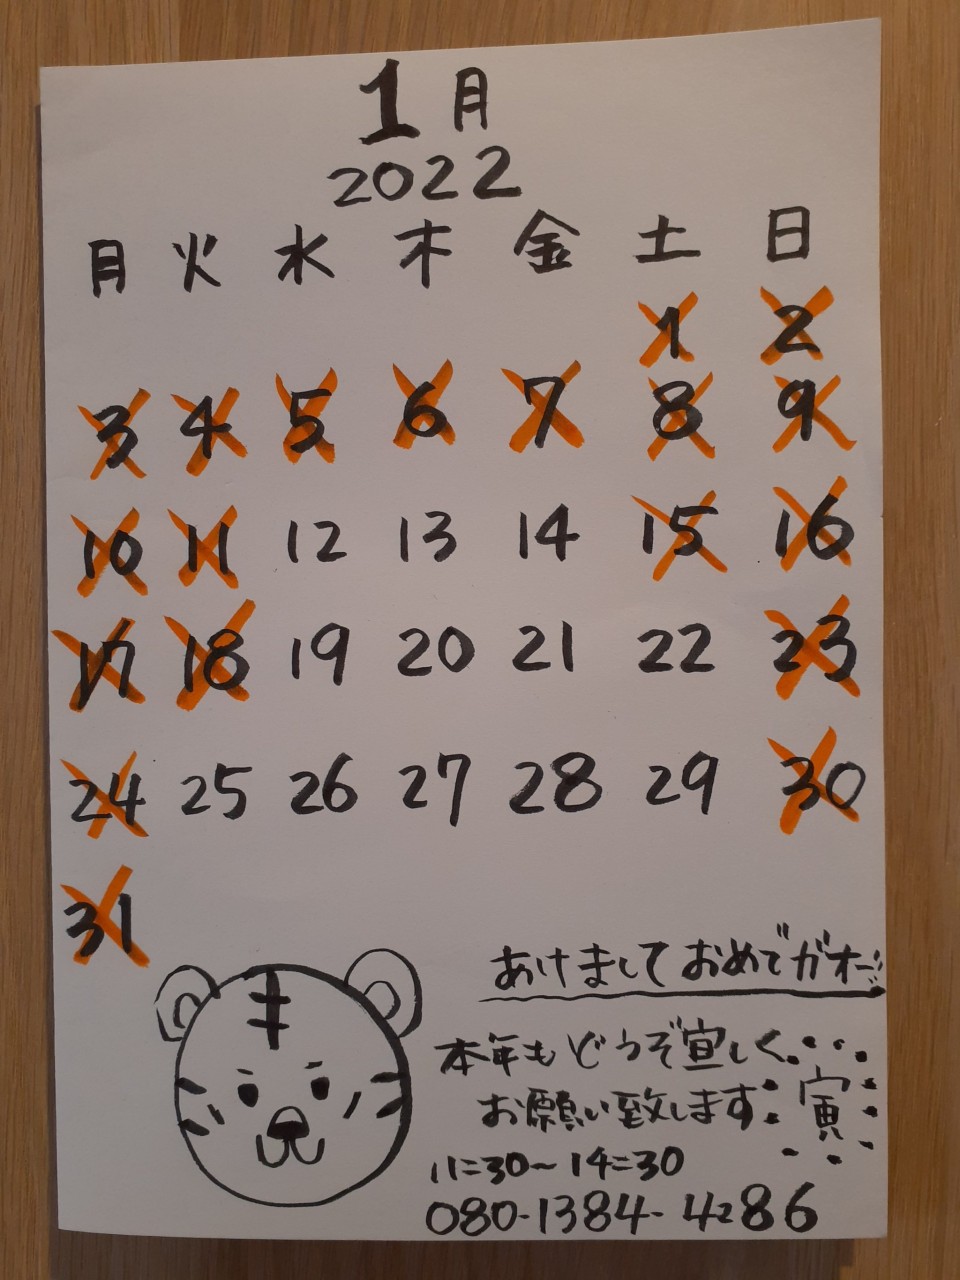 1月
2022
月 火 水 木 金 土 日
1 2
3 4 5 6 7 8 9
10 11 12 13 14 15 16
17 18 19 20 21 22 23
24 25 26 27 28 29 30
31
あけまして おめでガオー!!
本年も どうぞ宜しく
お願い致します
寅
11:30〜14:30
080-1384-4286